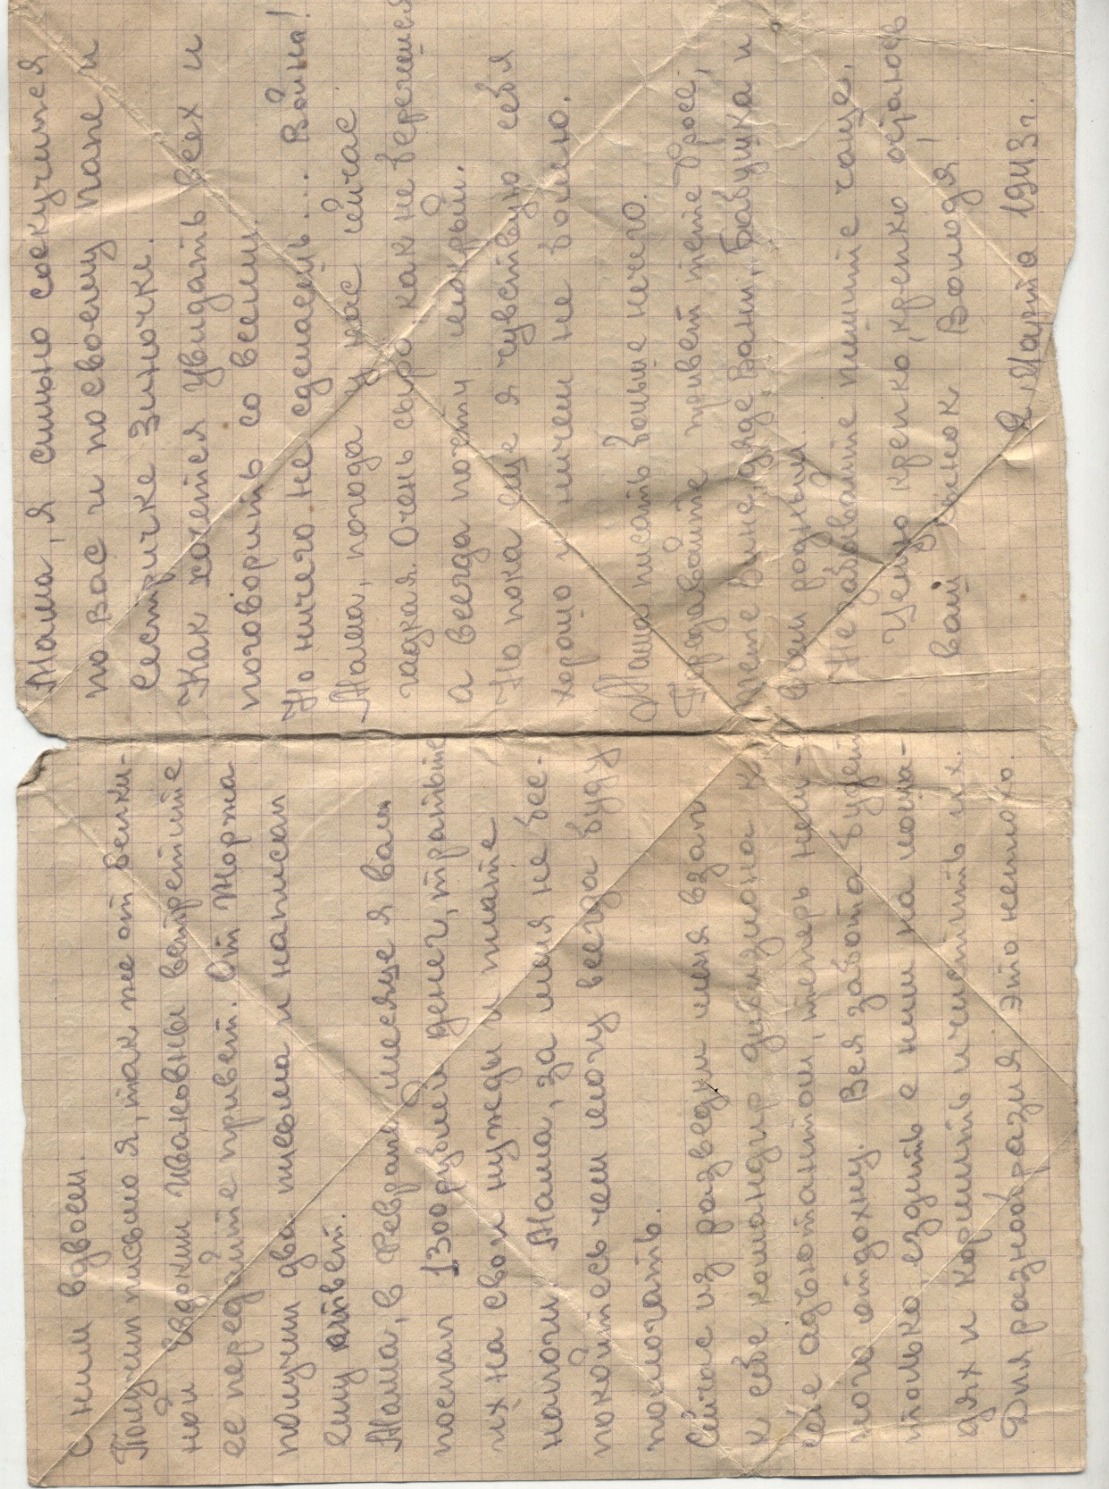 с ним вдвоем.
Получил письмо я, так же от велики-
ной Евдокии Ивановны встретите
ее передайте привет. От Жоржа
получил два письма и написал
ему ответ.
Мама, в Феврале месяце я вам
послал 1300 рублей денег, тратьте
их на свои нужды и платите
налоги. Мама, за меня не бес-
покойтесь чем могу всегда буду
помогать.
Сейчас из разведки меня взял
к себе командир дивизиона к
себе адъютантом, теперь нем-
ного отдохну. Вся забота будет
только, ездить с ним на лоша-
дях и кормить и чистить их.
Для разнообразия это неплохо.
Мама, я сильно соскучился
по вас и по своему папе и
сестричке Зиночке.
Как хочется увидать всех и
поговорить со всеми.
Но ничего не сделаешь... Война!
Мама, погода у нас сейчас
гадкая. Очень сыро как не вернешся
а всегда почти мокрый.
Но пока еще я чувствую себя
хорошо и ничем не болею.
Мама писать больше нечего.
Передавайте привет тете Фросе,
тете Вине дяде Вани, Бабушка и
всем родным.
Не забывайте пишите чаще.
Целую крепко, крепко, крепко остаюсь
ваш сынок Володя,
8, Марта 1943 г.